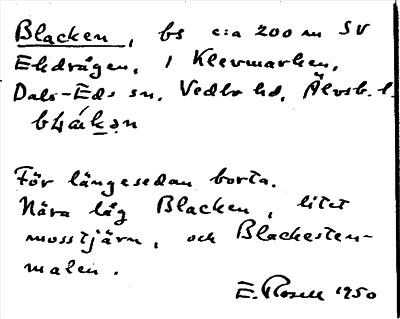 Blacken, bs c:a 200 m SV
Ekdrågen, i Klevmarken,
Dals-Eds sn. Vedbo hd, Älvsb. l.
För längesedan borta.
Nära låg Blacken, litet
mosstjärn, och Blackesten-
malen.
E. Rosell 1950